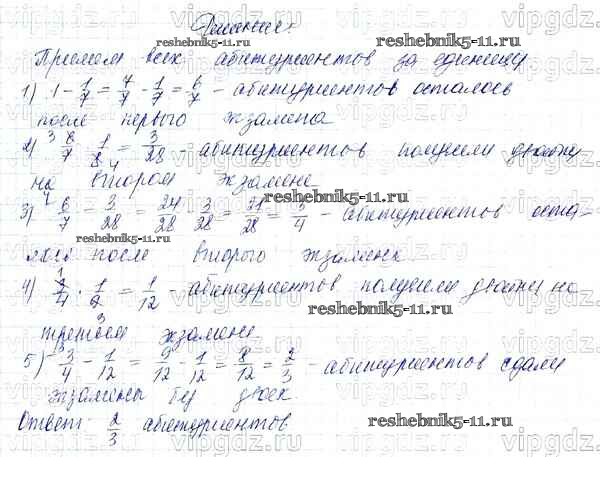 Решение:
Примем всех абитуриентов за единицу
1) 1 - 1/7 = 7/7 - 1/7 = 6/7 - абитуриентов осталось
после первого экзамена
2) 6/7 · 1/8 = 3/28 - абитуриентов получили двойку
на втором экзамене
3) 6/7 - 3/28 = 24/28 - 3/28 = 21/28 = 3/4 - абитуриентов оста-
лось после второго экзамена
4) 3/4 · 1/9 = 1/12 - абитуриентов получили двойку на
третьем экзамене
5) 3/4 - 1/12 = 9/12 - 1/12 = 8/12 = 2/3 - абитуриентов сдали
экзамены без двоек.
Ответ: 2/3 абитуриентов
reshebnik5-11.ru
vipgdz.com